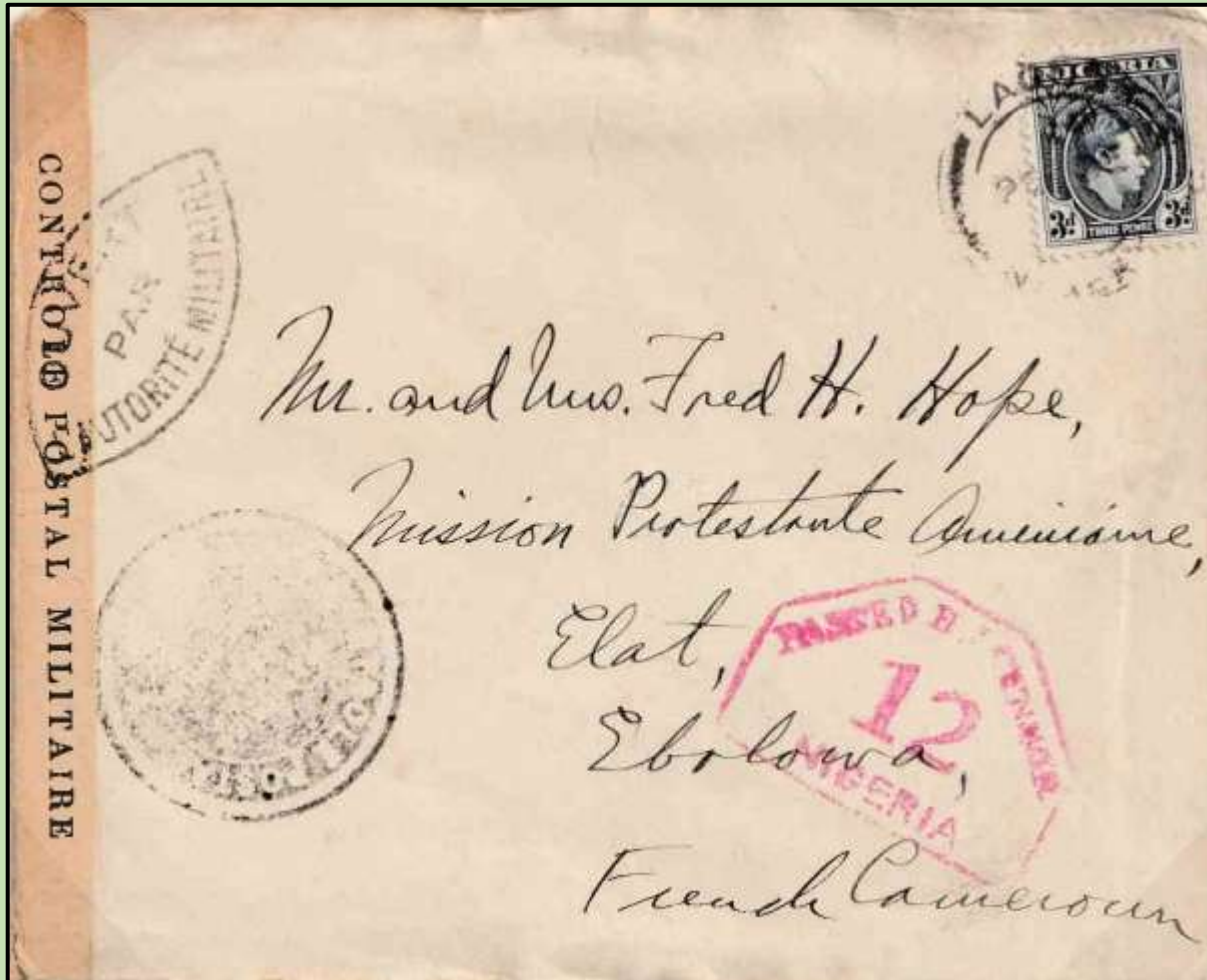 CONTROLE POSTAL MILITAIRE
PAR
AUTORITÉ MILITAIRE
LAGOS
NIGERIA
3d THREE PENCE 3d
Mr. and Mrs. Fred H. Hope,
Mission Protestante Américaine,
Elat,
Ebolowa,
French Cameroun
PASSED BY CENSOR
12
NIGERIA